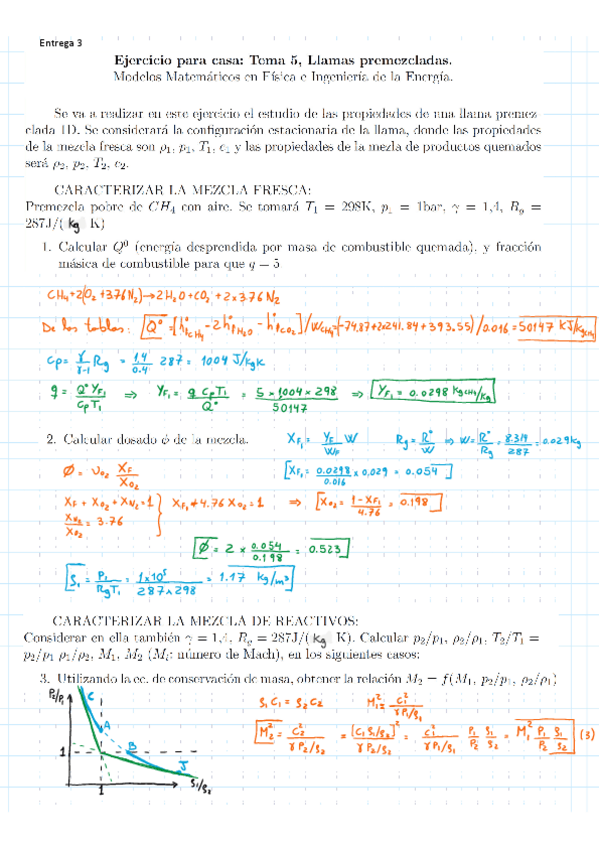 Entrega 3
Ejercicio para casa: Tema 5, Llamas premezcladas.
Modelos Matemáticos en Física e Ingeniería de la Energía.
Se va a realizar en este ejercicio el estudio de las propiedades de una llama premez
clada 1D. Se considerará la configuración estacionaria de la llama, donde las propiedades
de la mezcla fresca son ρ₁, p₁, T₁, c₁ y las propiedades de la mezla de productos quemados
será ρ₂, p₂, T₂, c₂.
CARACTERIZAR LA MEZCLA FRESCA:
Premezcla pobre de CH₄ con aire. Se tomará T₁ = 298K, p₁ = 1bar, γ = 1,4, R_g =
287J/( kg K)
1. Calcular Q⁰ (energía desprendida por masa de combustible quemada), y fracción
másica de combustible para que q = 5
CH₄+2(O₂+3.76N₂)→2H₂O+CO₂+2×3.76N₂
De las tablas: Q° = [h°_CH₄ - 2h°_H₂O - h°_CO₂]/W_CH₄ = (-74.87+2×241.84+393.55)/0.016 = 50147 KJ/kg_CH₄
Cp = γ/(γ-1) Rg = 1.4/0.4 287 = 1004 J/kgK
q = Q°Y_F₁/(CpT₁) ⇒ Y_F₁ = q CpT₁/Q° = 5×1004×298/50147 ⇒ Y_F₁ = 0.0298 kg_CH₄/kg
2. Calcular dosado ϕ de la mezcla.
X_F₁ = Y_F₁/W_F W Rg = R°/W ⇒ W = R°/Rg = 8.314/287 = 0.029kg
Ø = ν_O₂ X_F/X_O₂
[X_F₁ = 0.0298/0.016 × 0,029 = 0.054]
X_F + X_O₂ + X_N₂ = 1
X_N₂/X_O₂ = 3.76
X_F₁ + 4.76 X_O₂ = 1 ⇒ [X_O₂ = (1-X_F₁)/4.76 = 0.198]
[Ø = 2 × 0.054/0.198 = 0.523]
[ρ₁ = P₁/(RgT₁) = 1×10⁵/(287×298) = 1.17 kg/m³]
CARACTERIZAR LA MEZCLA DE REACTIVOS:
Considerar en ella también γ = 1,4, R_g = 287J/( kg K). Calcular p₂/p₁, ρ₂/ρ₁, T₂/T₁ =
p₂/p₁ ρ₁/ρ₂, M₁, M₂ (Mᵢ: número de Mach), en los siguientes casos:
3. Utilizando la ec. de conservación de masa, obtener la relación M₂ = f(M₁, p₂/p₁, ρ₂/ρ₁)
P₂/P₁
C
A
B
J
1
1
ρ₁/ρ₂
ρ₁ C₁ = ρ₂ C₂ M₁² = C₁²/(γP₁/ρ₁)
[M₂² = C₂²/(γP₂/ρ₂) = [C₁ρ₁/ρ₂]²/(γP₂/ρ₂) = C₁²/(γP₁/ρ₁) P₁/P₂ ρ₁/ρ₂ = M₁² P₁/P₂ ρ₁/ρ₂] (3)